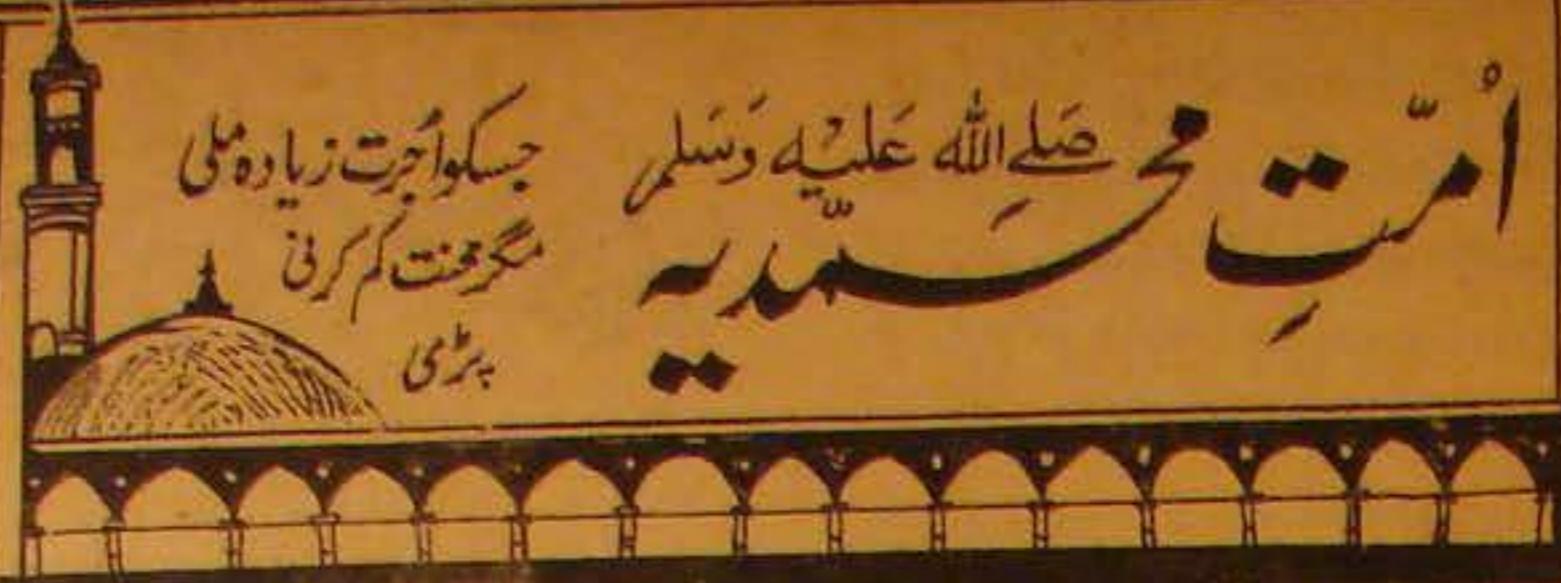 اُمّتِ محمّدیہ صَلے اللہ عَلیْہِ وَسَلم
جسکو اُجرت زیادہ ملی
مگر محنت کم کرنی
پڑی